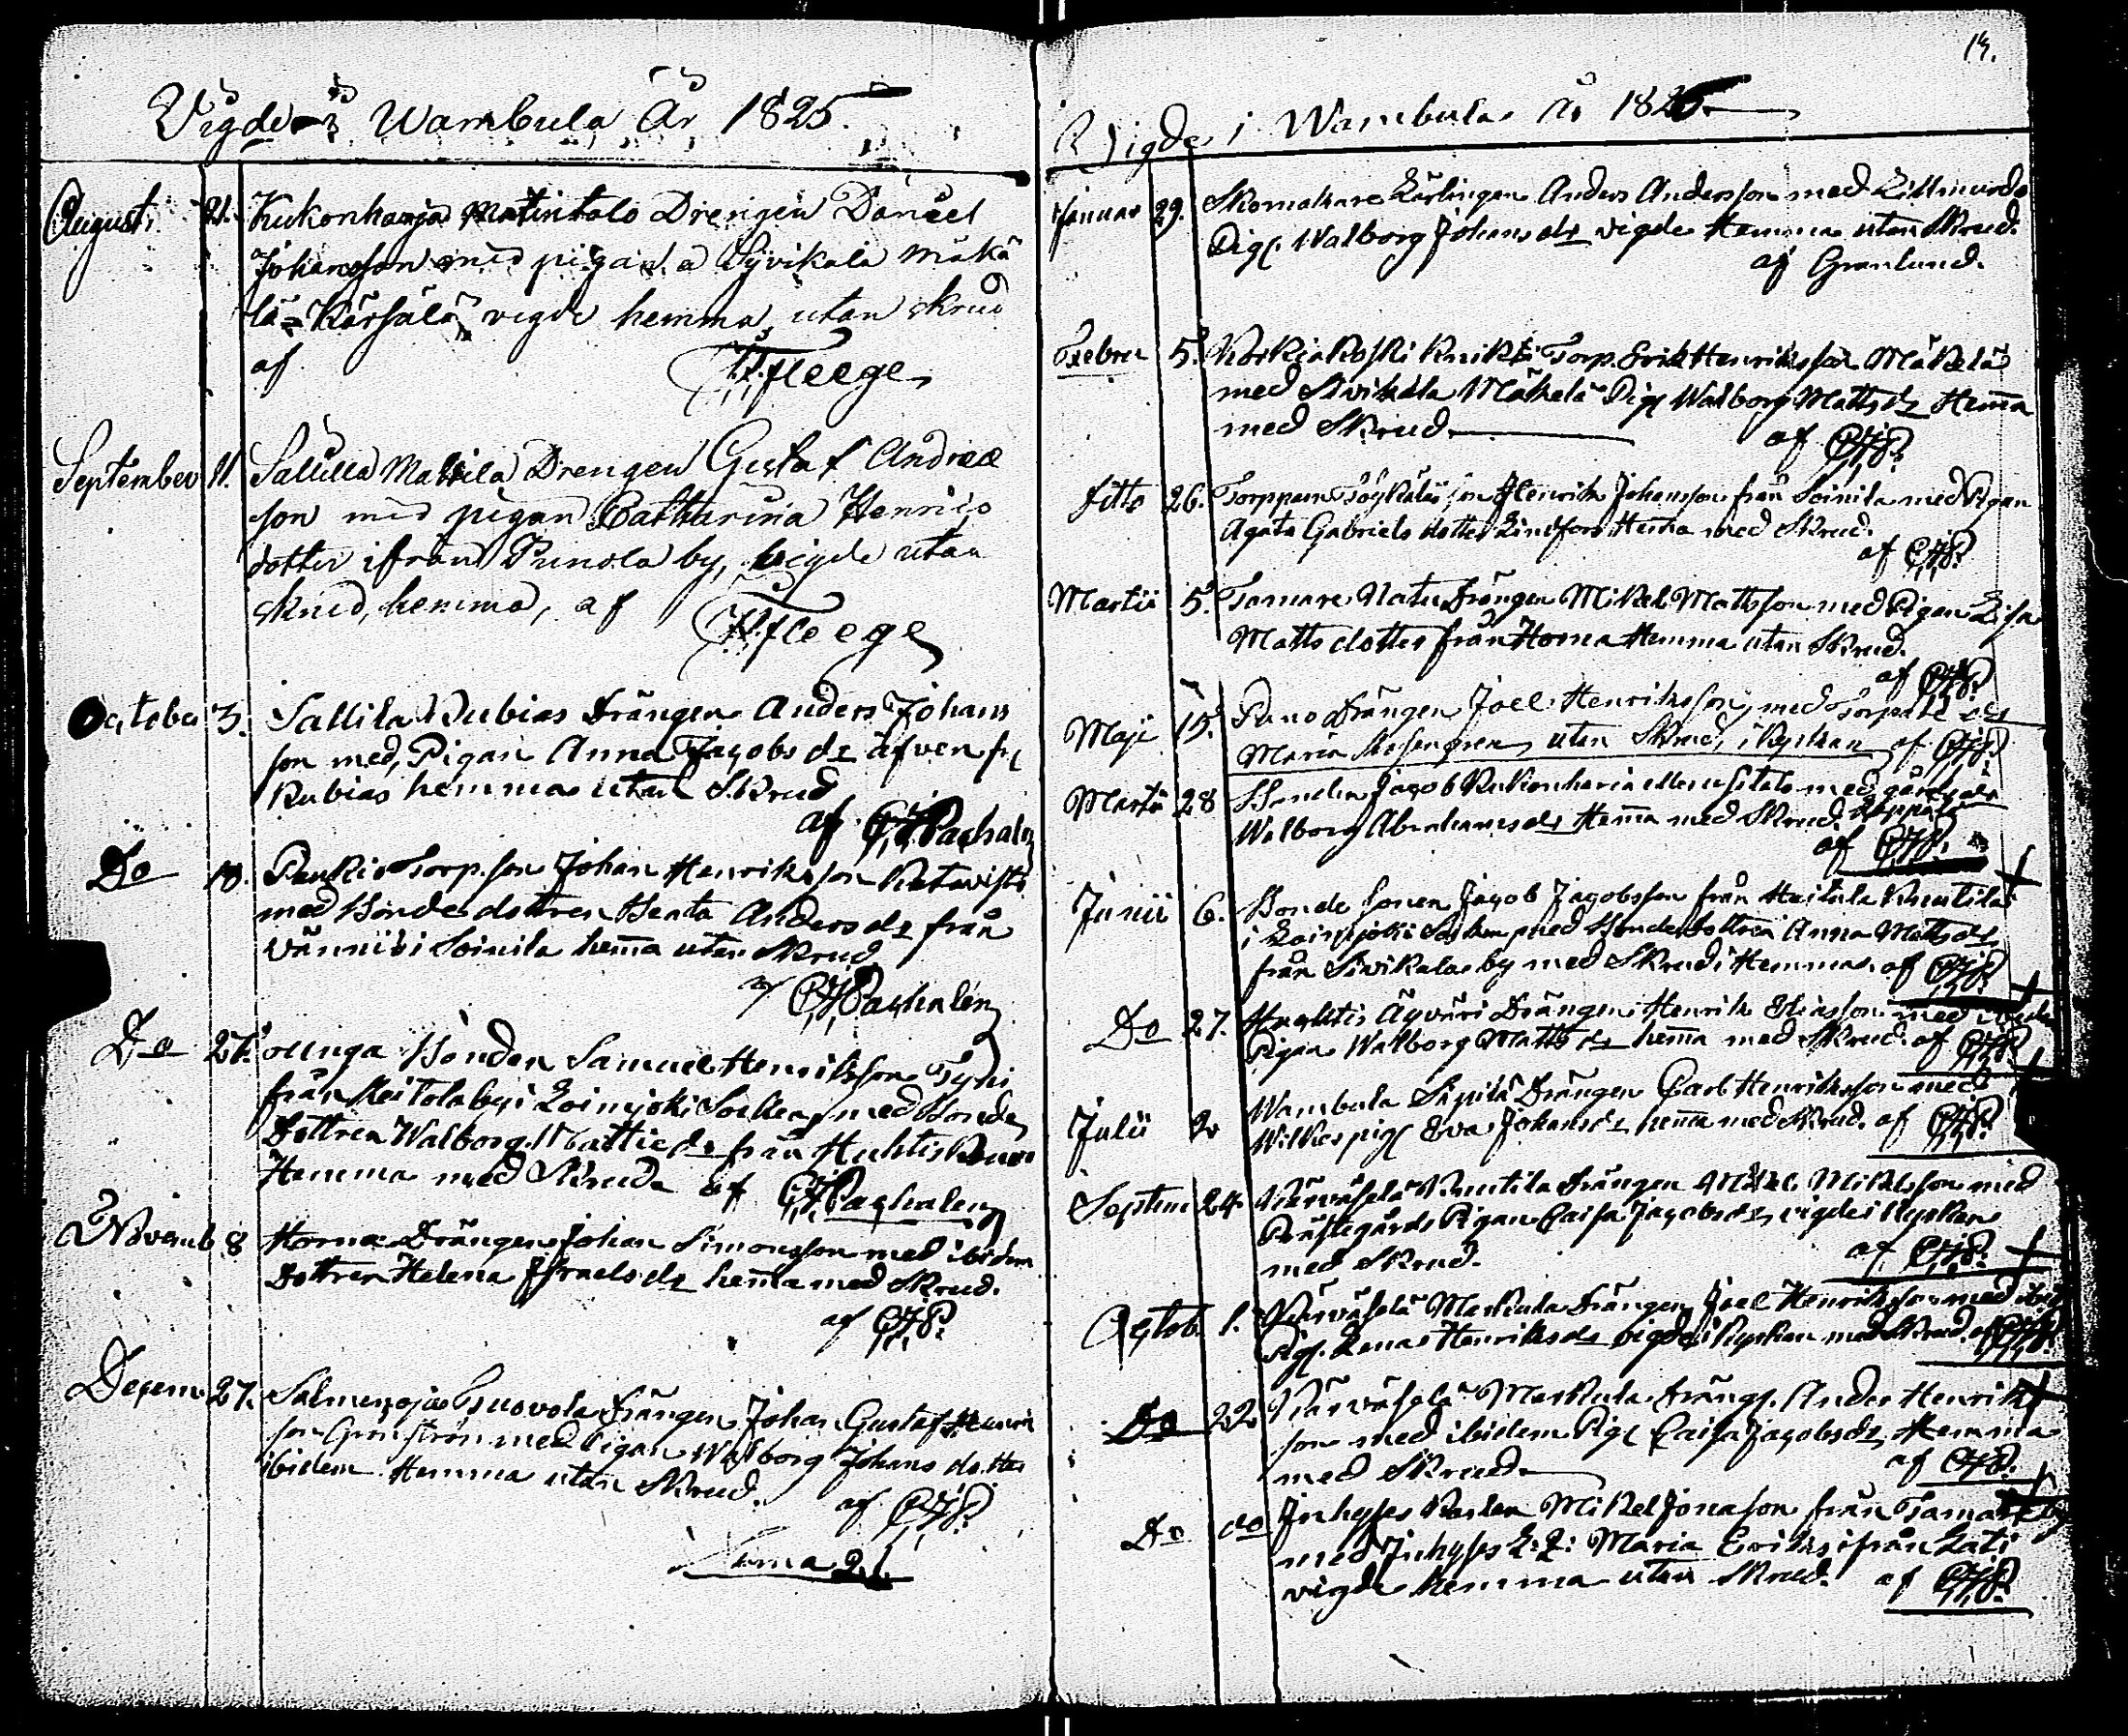 Vigde i Wambula År 1825.
Augusti 21. Kukonharja Matintalo Drengen Daniel
Johansson med pigan a Syvikala Mäkä
lä Kärsälä vigde hemma utan skrud
af Fleege
September 11. Salilla Mattila Drengen Gustaf Andræ
son med pigan Catharina Henrics
dotter ifrån Punola by, vigde utan
skrud, hemma, af
Fleege
October 3. Sallila Rubias Drängen Anders Johans
son med Pigan Anna Jacobs dr äfven fr
Rubias hemma utan Skrud
af C,H,Paghalen
Do 10. Peukis Torp. son Johan Henriksson
med Bondedottren Beata Anders dr från
Soinila hema utan Skrud
af C,H,Paghalén
Do 27. unga Bonden Samuel Henriksson
från by i Loimjoki Socken med Bonde
Dottren Walborg Matties dr från Huhtis
Hemma med Skrud af C,H,Paghalen
Novemb 8 Horna Drängen Johan Simonsson med ibidem
Dottren Helena Israels dr hema med Skrud.
af C,H,P.
Decem. 27. Salmenoja Drängen Johan Gustaf
son Grönström med Pigan Walborg Johans dotter
ibidem Hemma utan Skrud.
af C,H,P.
Suma 21.
19.
Vigde i Wambula År 1826
Januar 29. Skomakare Lärlingen Anders Andersson med
Pig. Walborg Johans dr vigde Hemma utan Skrud.
af Granlund.
Februr 5. Korkiakoski Torp. Erik Henriksson Mäkelä
med Sivikala Mäkelä Pig Walborg Matts dr Hema
med Skrud. af C,H,P.
ditto 26. Torpparen son Henrik Johansson från Soinila med Pigan
Agata Gabriels dotter Hema med Skrud.
af C,H,P.
Martii 5. Tamare Drängen Mikel Mattsson med Pigan Lisa
Matts dotter från Horna Hemma utan Skrud.
af C,H,P.
Maji 15. Puno Drängen Joel Henriksson med
Maria utan Skrud, i Kyrkan af C,H,P.
Martii 28 Bonden Jacob Kukonharja med
Walborg Abrahams dr Hema med Skrud.
af C,H,P.
Junii 6. Bonde sonen Jacob Jacobsson från
i Loimjoki Socken med Bondedottren Anna Matts dr
från Sivikala by med Skrud Hemma. af C,H,P.
Do 27. Huhtis Äyväri Drängen Henrik Eliasson med
Pigan Walborg Matts dr hema med Skrud. af C,H,P.
Julii 2 Wambula Sipilä Drängen Carl Henriksson med
pig Eva Johans dr hema med Skrud. af C,H,P.
Septem 24. Kärväselä Knutila Drängen Mikel Mikelsson med
Prästegårds Pigan Caisa Jacobs dr, vigde i Kyrkan
med Skrud. af C,H,P.
October 1. Kärväselä Markula Drängen Joel Henriksson med ibid
Pig. Lena Henriks dr vigde i Kyrkan med Skrud. af C,H,P.
Do 22 Kärväselä Markula Dräng. Anders Henriks
son med ibidem Pig Caisa Jacobs dr Hemma
med Skrud. af C,H,P.
Do do Inhyses Karlen Mikel Jonason från Tamare by
med Inhyses Maria Eriks ifrån Lati
vigde hemma utan Skrud. af C,H,P.